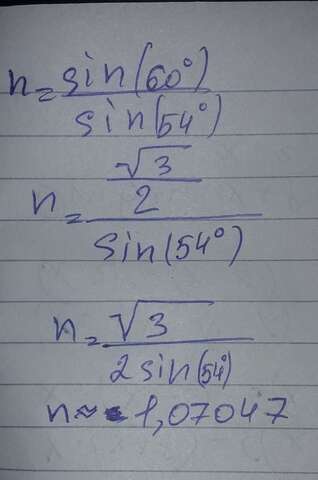 n = sin(60°) / sin(54°)
n = (√3 / 2) / sin(54°)
n = √3 / 2 sin(54°)
n ≈ 1,07047